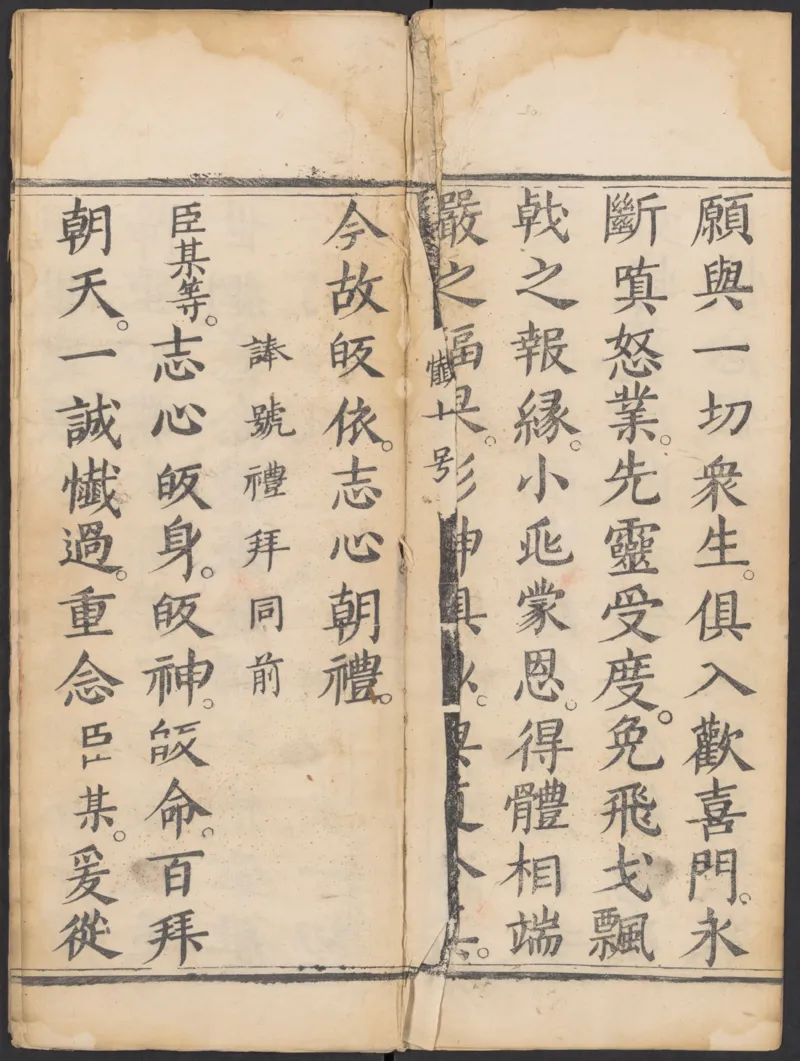 願與一切衆生。俱入歡喜門。永
斷嗔怒業。先靈受度。免飛戈飄
戟之報緣。小兆蒙恩。得體相端
嚴之福果。形神俱妙。與道合真。
懺 号
今故皈依。志心朝禮。
號禮拜同前
臣某等。志心皈身。皈神。皈命。百拜
朝天。一誠懺過。重念臣某。爰從